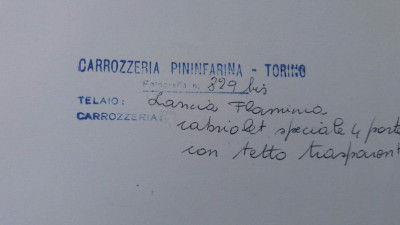 CARROZZERIA PININFARINA - TORINO
Fotografia n. 829 bis
TELAIO: Lancia Flaminia
CARROZZERIA: cabriolet speciale 4 porte
con tetto trasparent